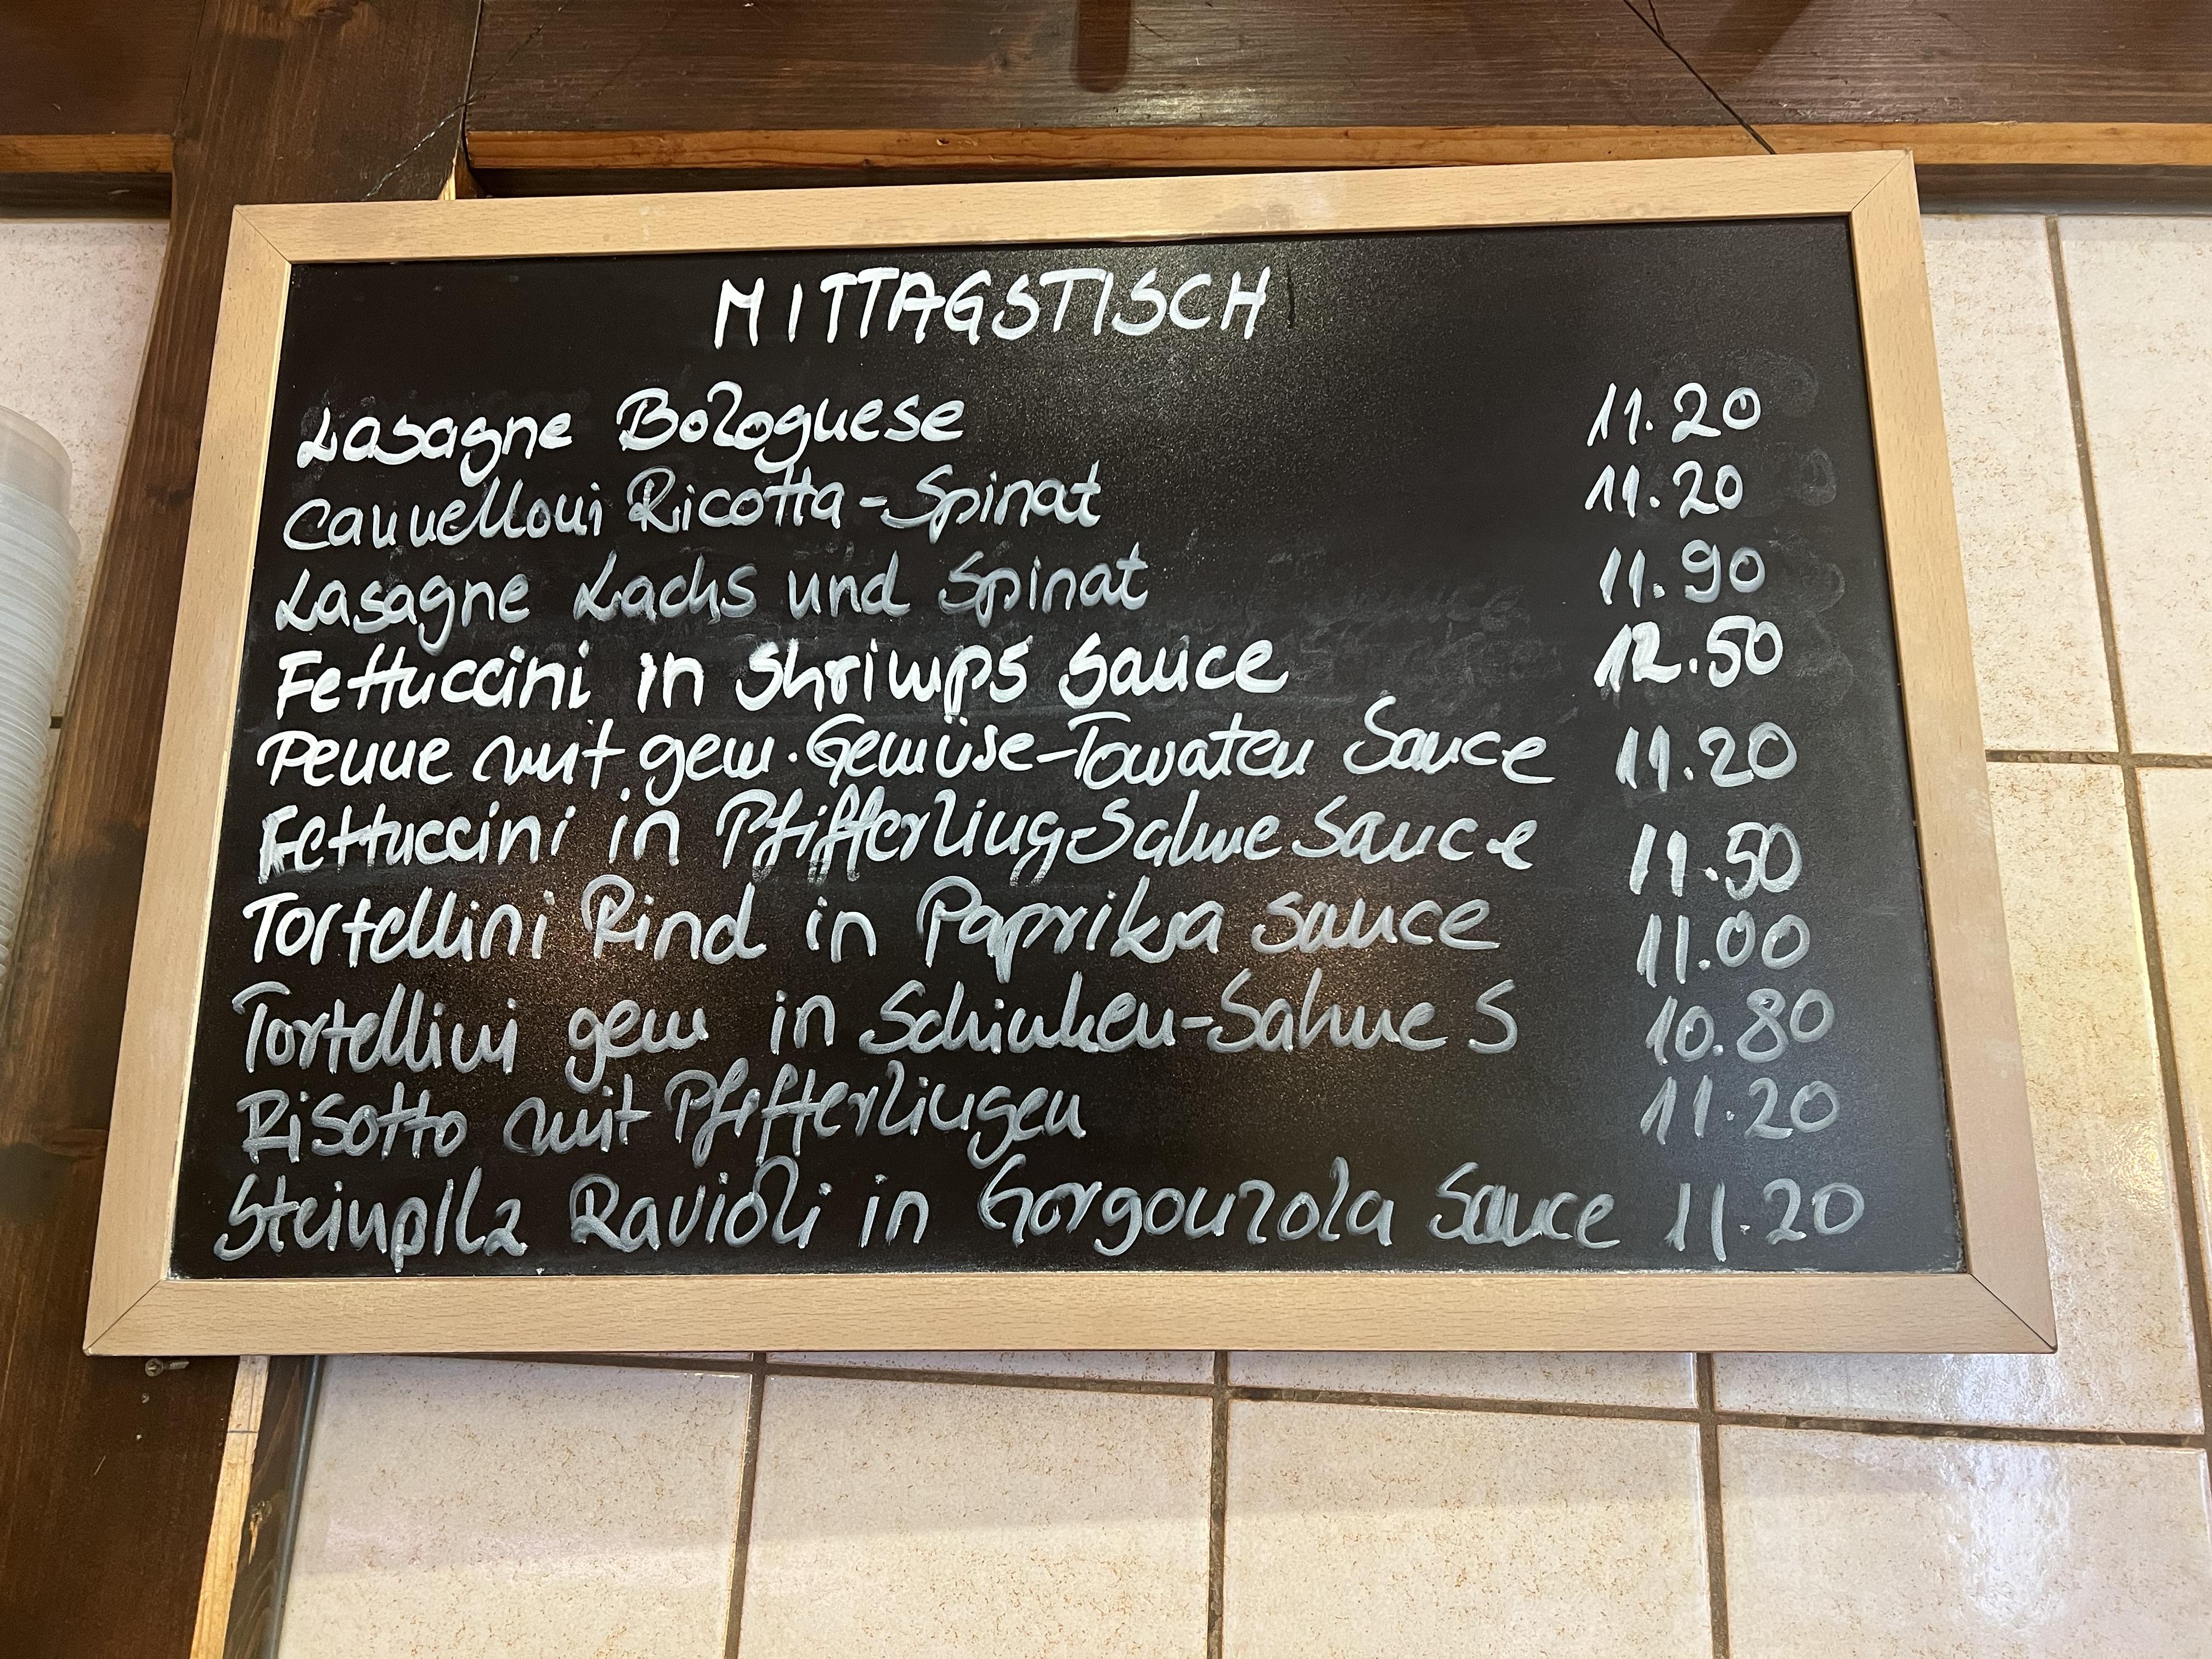 MITTAGSTISCH
Lasagne Bolognese 11.20
Cannelloni Ricotta-Spinat 11.20
Lasagne Lachs und Spinat 11.90
Fettuccini in Shrimps Sauce 12.50
Penne mit gem. Gemüse-Tomaten Sauce 11.20
Fettuccini in Pfifferling-Sahne Sauce 11.50
Tortellini Rind in Paprika Sauce 11.00
Tortellini gem in Schinken-Sahne S 10.80
Risotto mit Pfifferlingen 11.20
Steinpilz Ravioli in Gorgonzola Sauce 11.20